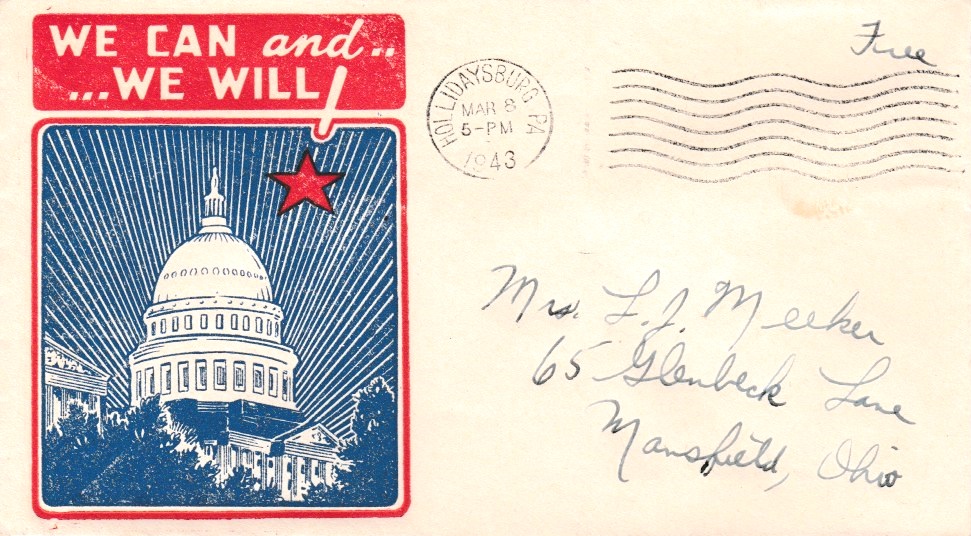 WE CAN and..
...WE WILL!
Free
HOLLIDAYSBURG, PA
MAR 8
5-PM
1943
Mrs. L. J. Meeker
65 Glenbeck Lane
Mansfield, Ohio